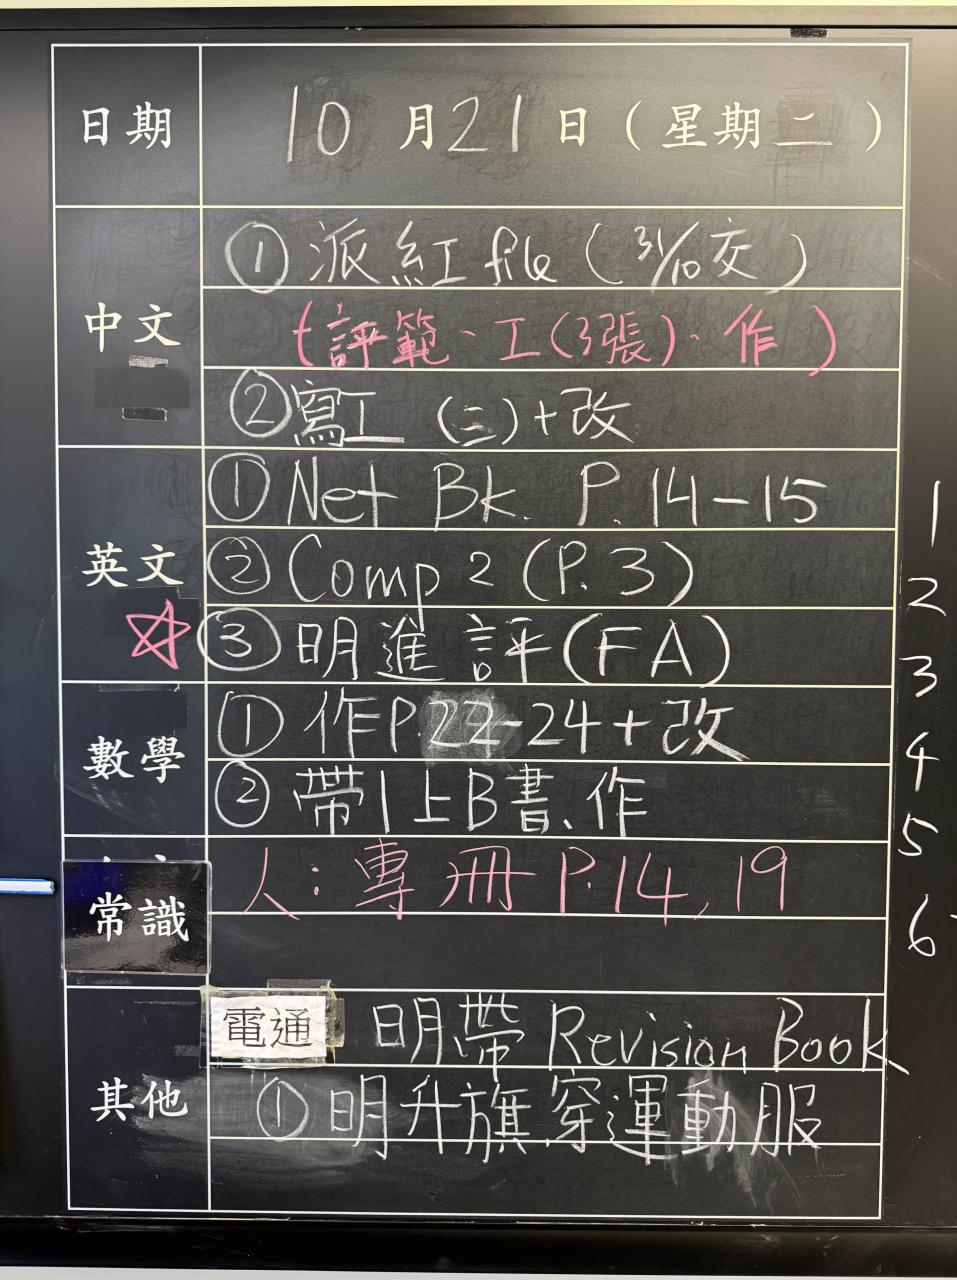 日期 10月21日(星期二)
中文
①派紅file(31/10交)
(評範、工(3張)、作)
②寫工(二)+改
英文
①Net Bk. P.14-15
②Comp 2 (P.3)
③明進評(FA)
數學
①作P.22-24+改
②帶1上B書、作
常識
人:專冊P.14, 19
其他
電通 明帶Revision Book
①明升旗穿運動服
1
2
3
4
5
6